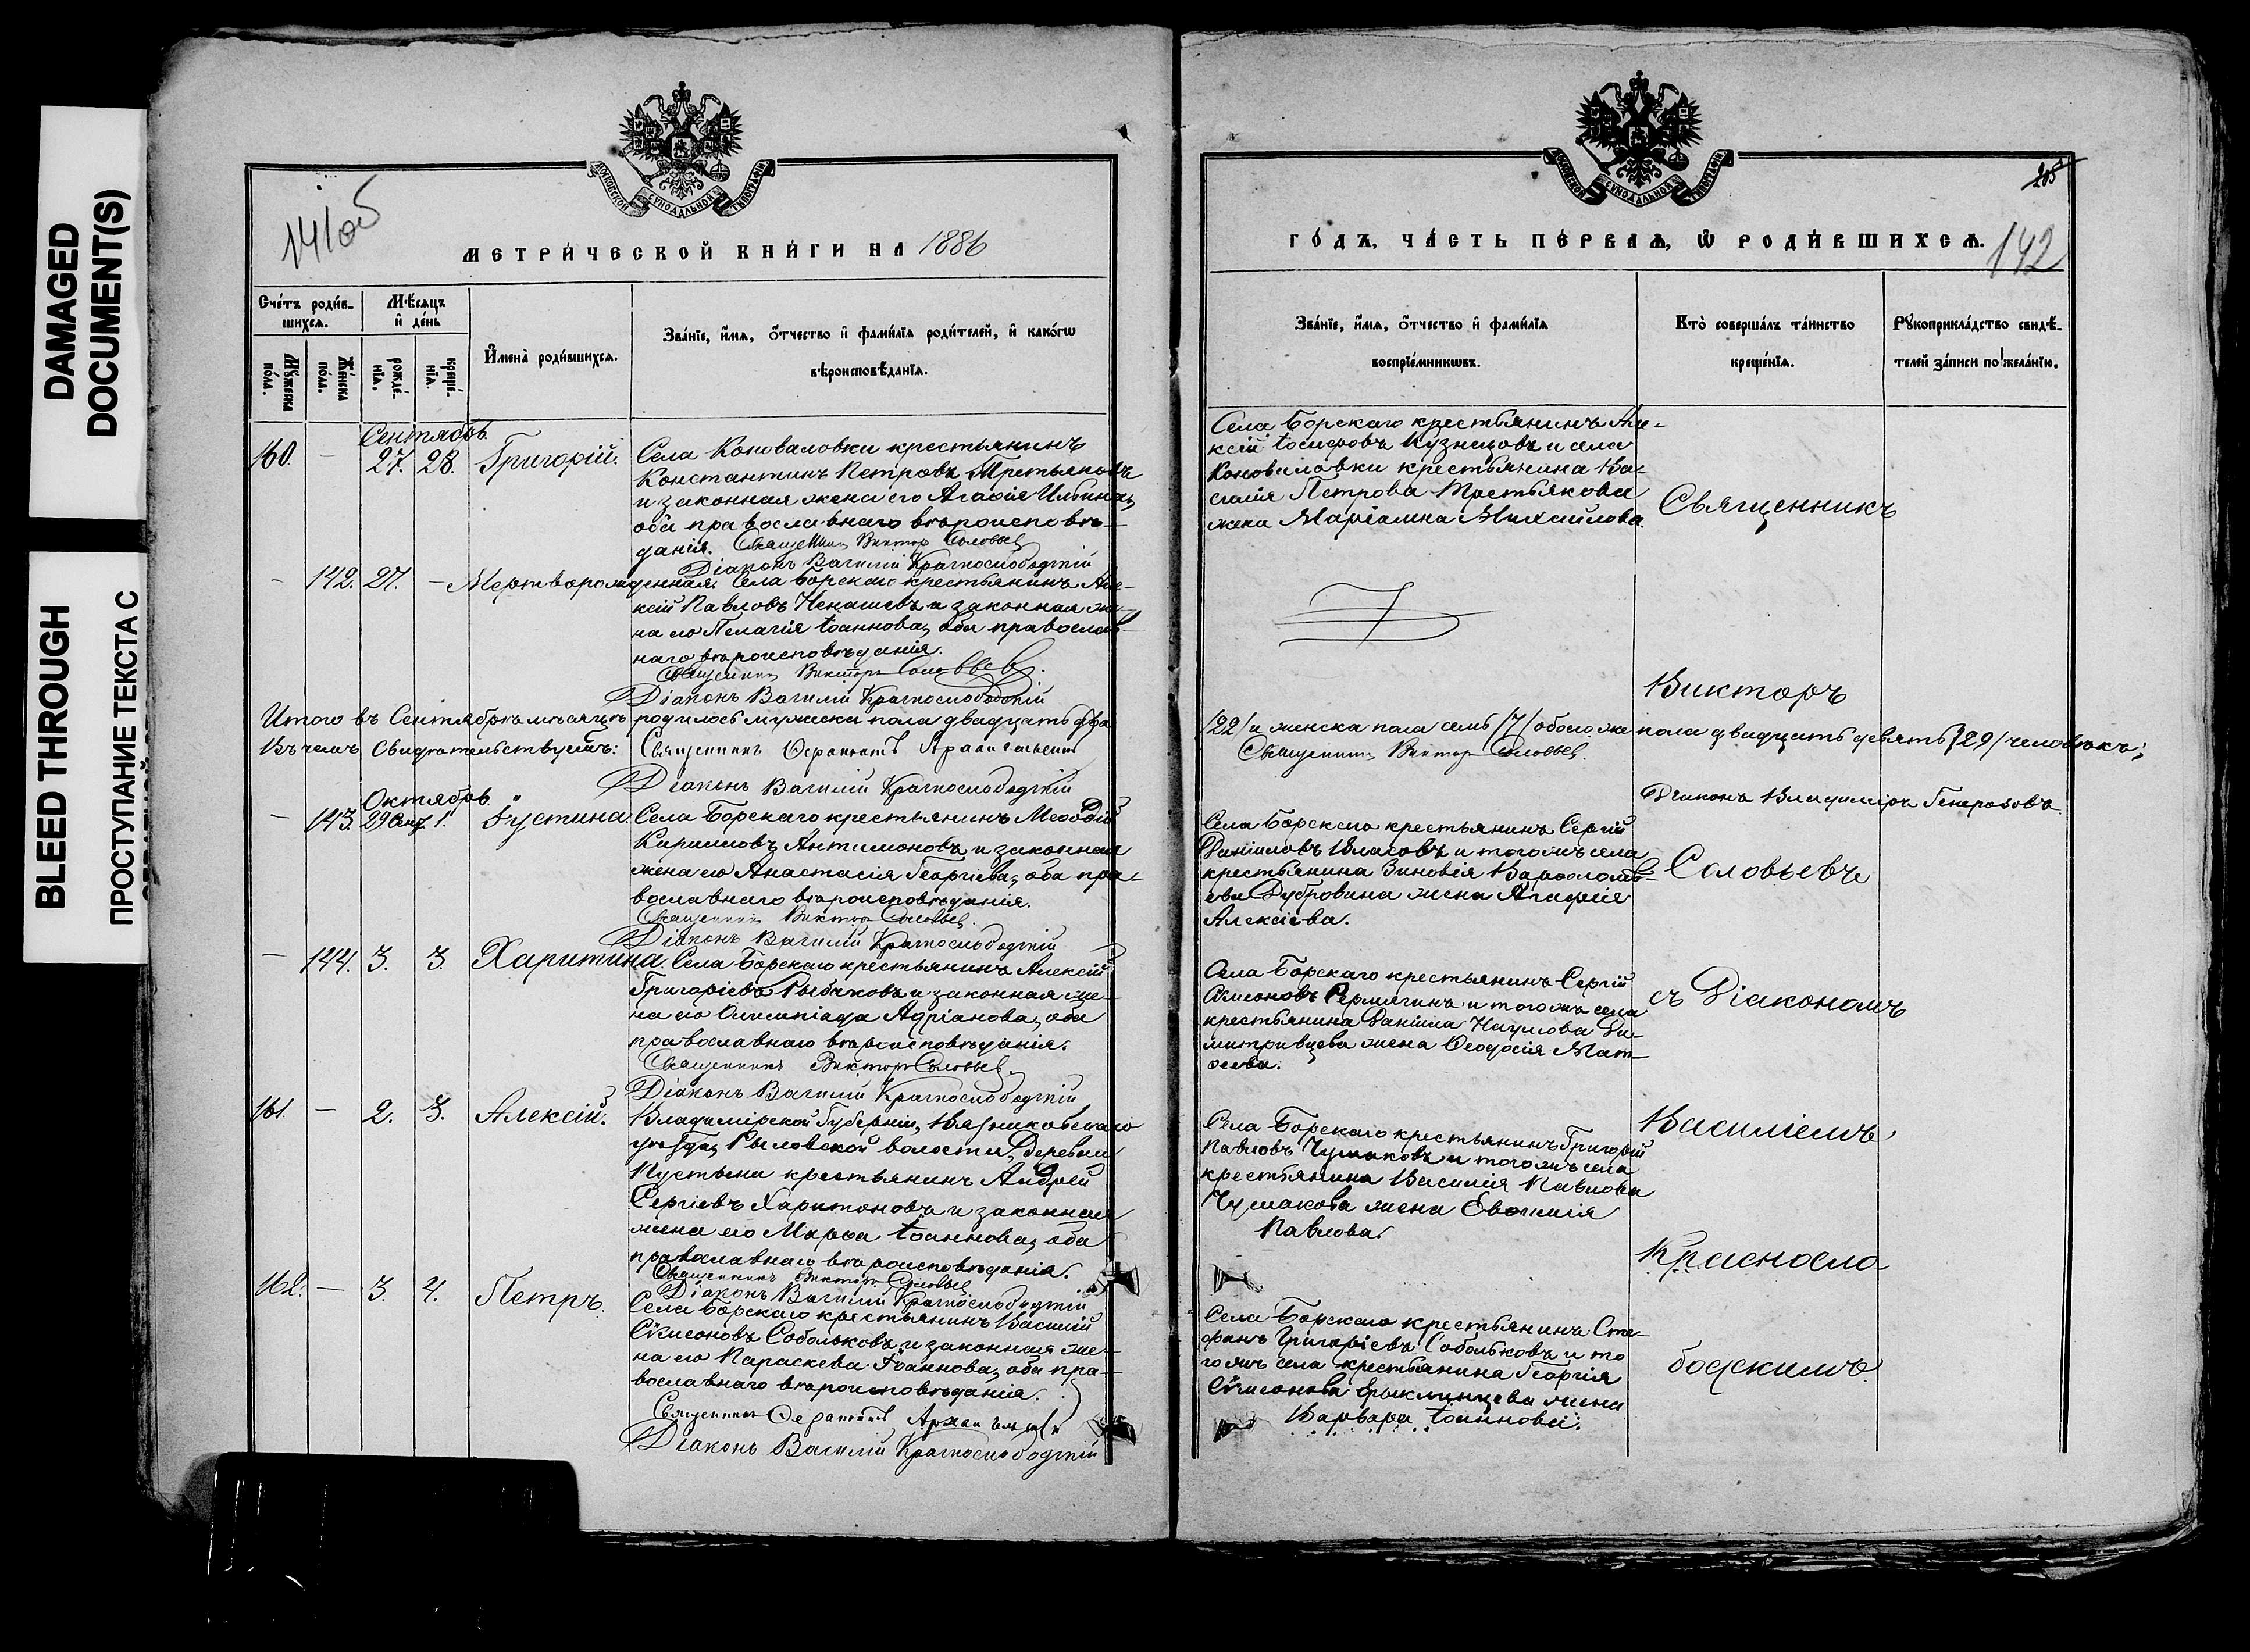 DAMAGED
DOCUMENT(S)
BLEED THROUGH
ПРОСТУПАНИЕ ТЕКСТА С
141об
МОСКОВСКОЙ СѴНОДАЛЬНОЙ ТИПОГРАФІИ
МЕТРИ́ЧЕСКОЙ КНИ́ГИ НА 1886
Сче́тъ роди́в-
шихсѧ.
Мѣ́сѧцъ
и҆ де́нь
Мꙋ́жеска
по́ла.
Же́нска
по́ла.
рожде́-
нїѧ.
креще́-
нїѧ.
И҆мена̀ роди́вшихсѧ.
Зва́нїе, и҆́мѧ, ѻ҆́тчество и҆ фами́лїѧ роди́телей, и҆ како́гѡ
вѣроисповѣ́данїѧ.
Сентябрь.
160. — 27. 28. Григорій. Села Коноваловки крестьянинъ
Константинъ Петровъ Третьяковъ
и законная жена его Агафія Ильина,
оба православнаго вѣроисповѣ-
данія. Священникъ Викторъ Соловьевъ
Діаконъ Василій Краснослободскій
— 142. 27. — Мертворожденная. Села Борскаго крестьянинъ Але-
ксій Павловъ Ненашевъ и законная же-
на его Пелагія Іоаннова, оба православ-
наго вѣроисповѣданія.
Священникъ Викторъ Соловьевъ.
Діаконъ Василій Краснослободскій
Итого въ Сентябрѣ мѣсяцѣ родилось мужеска пола двадцать два
Въ чемъ свидѣтельствуемъ: Священникъ Ферапонтъ
Діаконъ Василій Краснослободскій
Октябрь.
— 143. 29 Сент. 1. Іустина. Села Борскаго крестьянинъ Меѳодій
Кирилловъ Антимоновъ и законная
жена его Анастасія Георгіева, оба пра-
вославнаго вѣроисповѣданія.
Священникъ Викторъ Соловьевъ.
Діаконъ Василій Краснослободскій
— 144. 3. 3. Харитина. Села Борскаго крестьянинъ Алексій
Григоріевъ Рыбаковъ и законная же-
на его Олимпіада Адріанова, оба
православнаго вѣроисповѣданія.
Священникъ Викторъ Соловьевъ.
Діаконъ Василій Краснослободскій
161. — 2. 3. Алексій. Владимірской Губерніи, Вязниковскаго
уѣзда, Рыловской волости, Деревни
Пустыни крестьянинъ Андрей
Сергіевъ Харитоновъ и законная
жена его Марѳа Іоаннова, оба
православнаго вѣроисповѣданія.
Священникъ Викторъ Соловьевъ
Діаконъ Василій Краснослободскій
162. — 3. 4. Петръ. Села Борскаго крестьянинъ Василій
Сѵмеоновъ Собольковъ и законная же-
на его Параскева Іоаннова, оба пра-
вославнаго вѣроисповѣданія.
Священникъ Ферапонтъ
Діаконъ Василій Краснослободскій
МОСКОВСКОЙ СѴНОДАЛЬНОЙ ТИПОГРАФІИ
205
ГО́ДЪ, ЧА́СТЬ ПЕ́РВАѦ, Ѽ РОДИ́ВШИХСѦ. 142
Зва́нїе, и҆́мѧ, ѻ҆́тчество и҆ фами́лїѧ
воспрїе́мникѡвъ.
Кто̀ соверша́лъ та́инство
креще́нїѧ.
Рꙋкоприкла́дство свидѣ́-
телей за́писи по жела́нїю.
Села Борскаго крестьянинъ Але-
ксій Іосифовъ Кузнецовъ и села
Коноваловки крестьянина Ва-
силія Петрова Третьякова
жена Маріамна Михайлова.
Священникъ
Викторъ
/22/ и женска пола семь /7/ обоего же пола двадцать девять /29/ человѣкъ;
Священникъ Викторъ Соловьевъ.
Дьяконъ Владиміръ Генерозовъ
Села Борскаго крестьянинъ Сергій
Даніиловъ Власовъ и того жъ села
крестьянина Зиновія Варѳоломѣ-
ева Дубровина жена Агафія
Алексіева.
Соловьевъ
Села Борскаго крестьянинъ Сергій
Сѵмеоновъ и того жъ села
крестьянина Даніила Наумова Ди-
митривцева жена Ѳеодосія Мат-
ѳеева.
съ Діакономъ
Села Борскаго крестьянинъ Григорій
Павловъ Чумаковъ и того жъ села
крестьянина Василія Павлова
Чумакова жена Евѳимія
Павлова.
Василіемъ
Красносло
Села Борскаго крестьянинъ Сте-
фанъ Григоріевъ Собольковъ и то
го жъ села крестьянина Георгія
Сѵмеонова жена
Варвара Іоаннова.
бодскимъ.